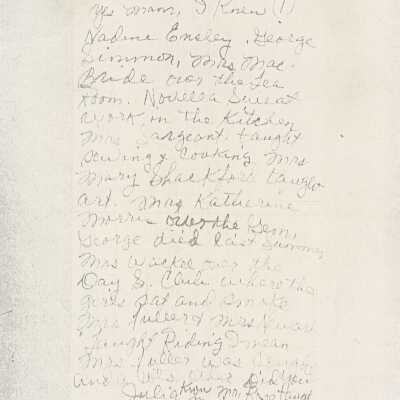 yes mam, I knew (1)
Nadine Ensley. George
Simmon, Mrs Mac-
Bride over the Tea
room. Novella Sweat
work in the Kitchen
Mrs Sargeant taught
Sewing & Cooking Mrs
Mary Shackford taught
art. Mrs Katherine
Morris over the Gem,
George died last Summer
Mrs over the
Day S. Club where the
girls sat and smoke
Mrs Fuller & Mrs
taught Riding I mean
Mrs Fuller was
and Did you
Julia Know Mrs taught